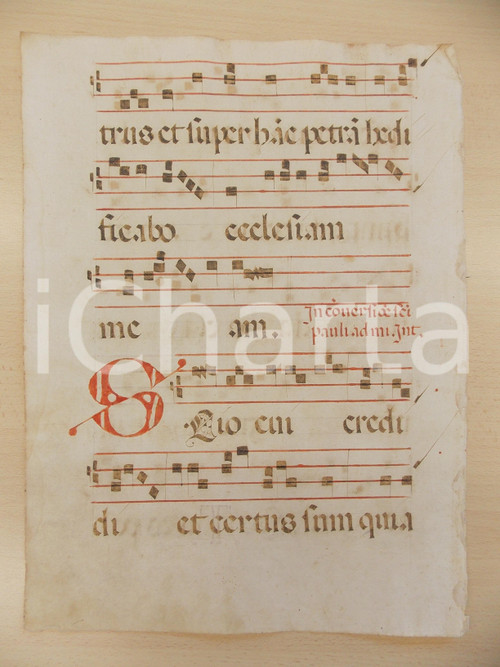 trus et super hāc petrā hedi
ficabo ecclesiam
me am.
In cōversiōe scī
pauli ad mi. Int.
Scio cui credi
di et certus sum quia
iCharta